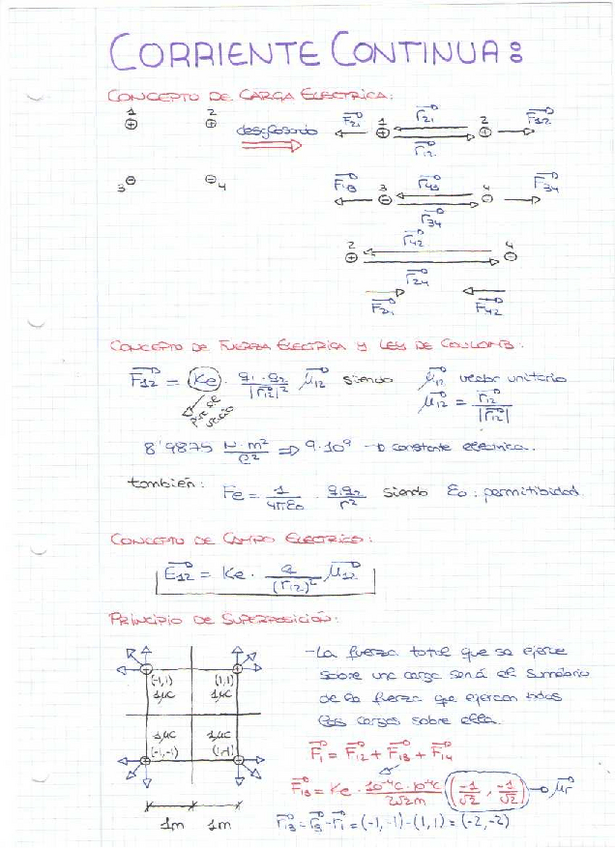 CORRIENTE CONTINUA:
CONCEPTO DE CARGA ELECTRICA:
1 2
3 4
desglosando
F21 1 r21 2 F12
r12
F43 3 r43 4 F34
r34
2 r42 4
r24
F24 F42
CONCEPTO DE FUERZA ELECTRICA Y LEY DE COULOMB:
F12 = Ke · q1·q2 / |r12|² μ12 siendo μ12 vector unitario
μ12 = r12 / |r12|
8'9875 N·m²/C² => 9·10⁹ → constante electrica.
también: Fe = 1/4πε0 · q1q2/r² siendo ε0: permitibidad
CONCEPTO DE CAMPO ELECTRICO:
E12 = Ke · q/(r12)² μ12
PRINCIPIO DE SUPERPOSICIÓN:
(-1,1) (1,1)
1μC 1μC
1μC 1μC
(-1,-1)
1m 1m
-La fuerza total que se ejerce
sobre una carga será el sumatorio
de la fuerza que ejercen todas
las cargas sobre ella.
F1 = F12 + F13 + F14
F13 = Ke · 10⁻⁶C·10⁻⁶C / 2√2m (-1/√2, -1/√2) → μr
r13 = r3 - r1 = (-1,-1) - (1,1) = (-2,-2)